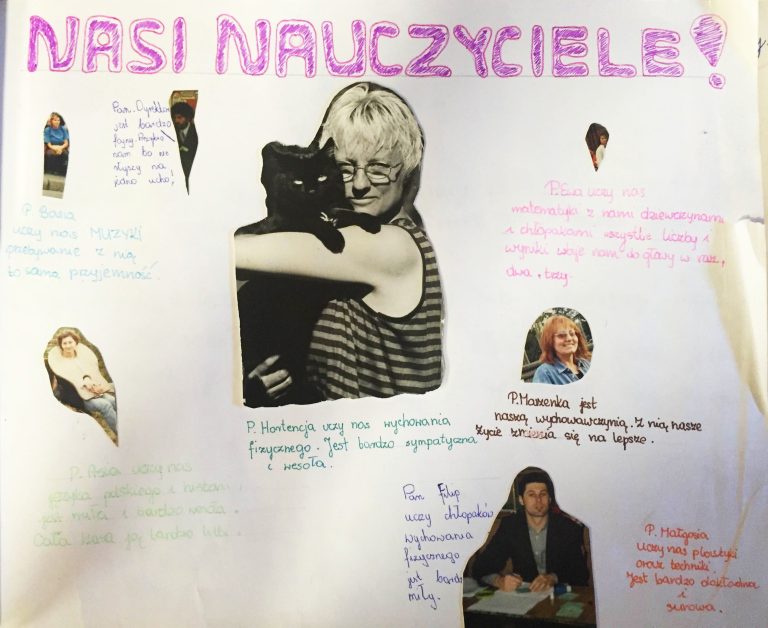 NASI NAUCZYCIELE!
Pan. Dyrektor
jest bardzo
fajny.
nam to nie
słyszy na
jedno ucho!
P. Basia
uczy nas MUZYKI
przebywanie z nią
to sama przyjemność.
P. Ewa uczy nas
matematyki z nami dziewczynami
i chłopakami wszystkie liczby i
wyniki wbije nam do głowy w raz,
dwa, trzy.
P. Marzenka jest
naszą wychowawczynią. Z nią nasze
życie zmienia się na lepsze.
P. Hortencja uczy nas wychowania
fizycznego. Jest bardzo sympatyczna
i wesoła.
uczy nas
języka polskiego i historii
jest miła i bardzo wesoła.
Cała klasa ją bardzo lubi.
Pan Filip
uczy chłopaków
wychowania
fizycznego
jest bardzo
miły.
P. Małgosia
uczy nas plastyki
oraz techniki.
Jest bardzo dokładna
i
surowa.